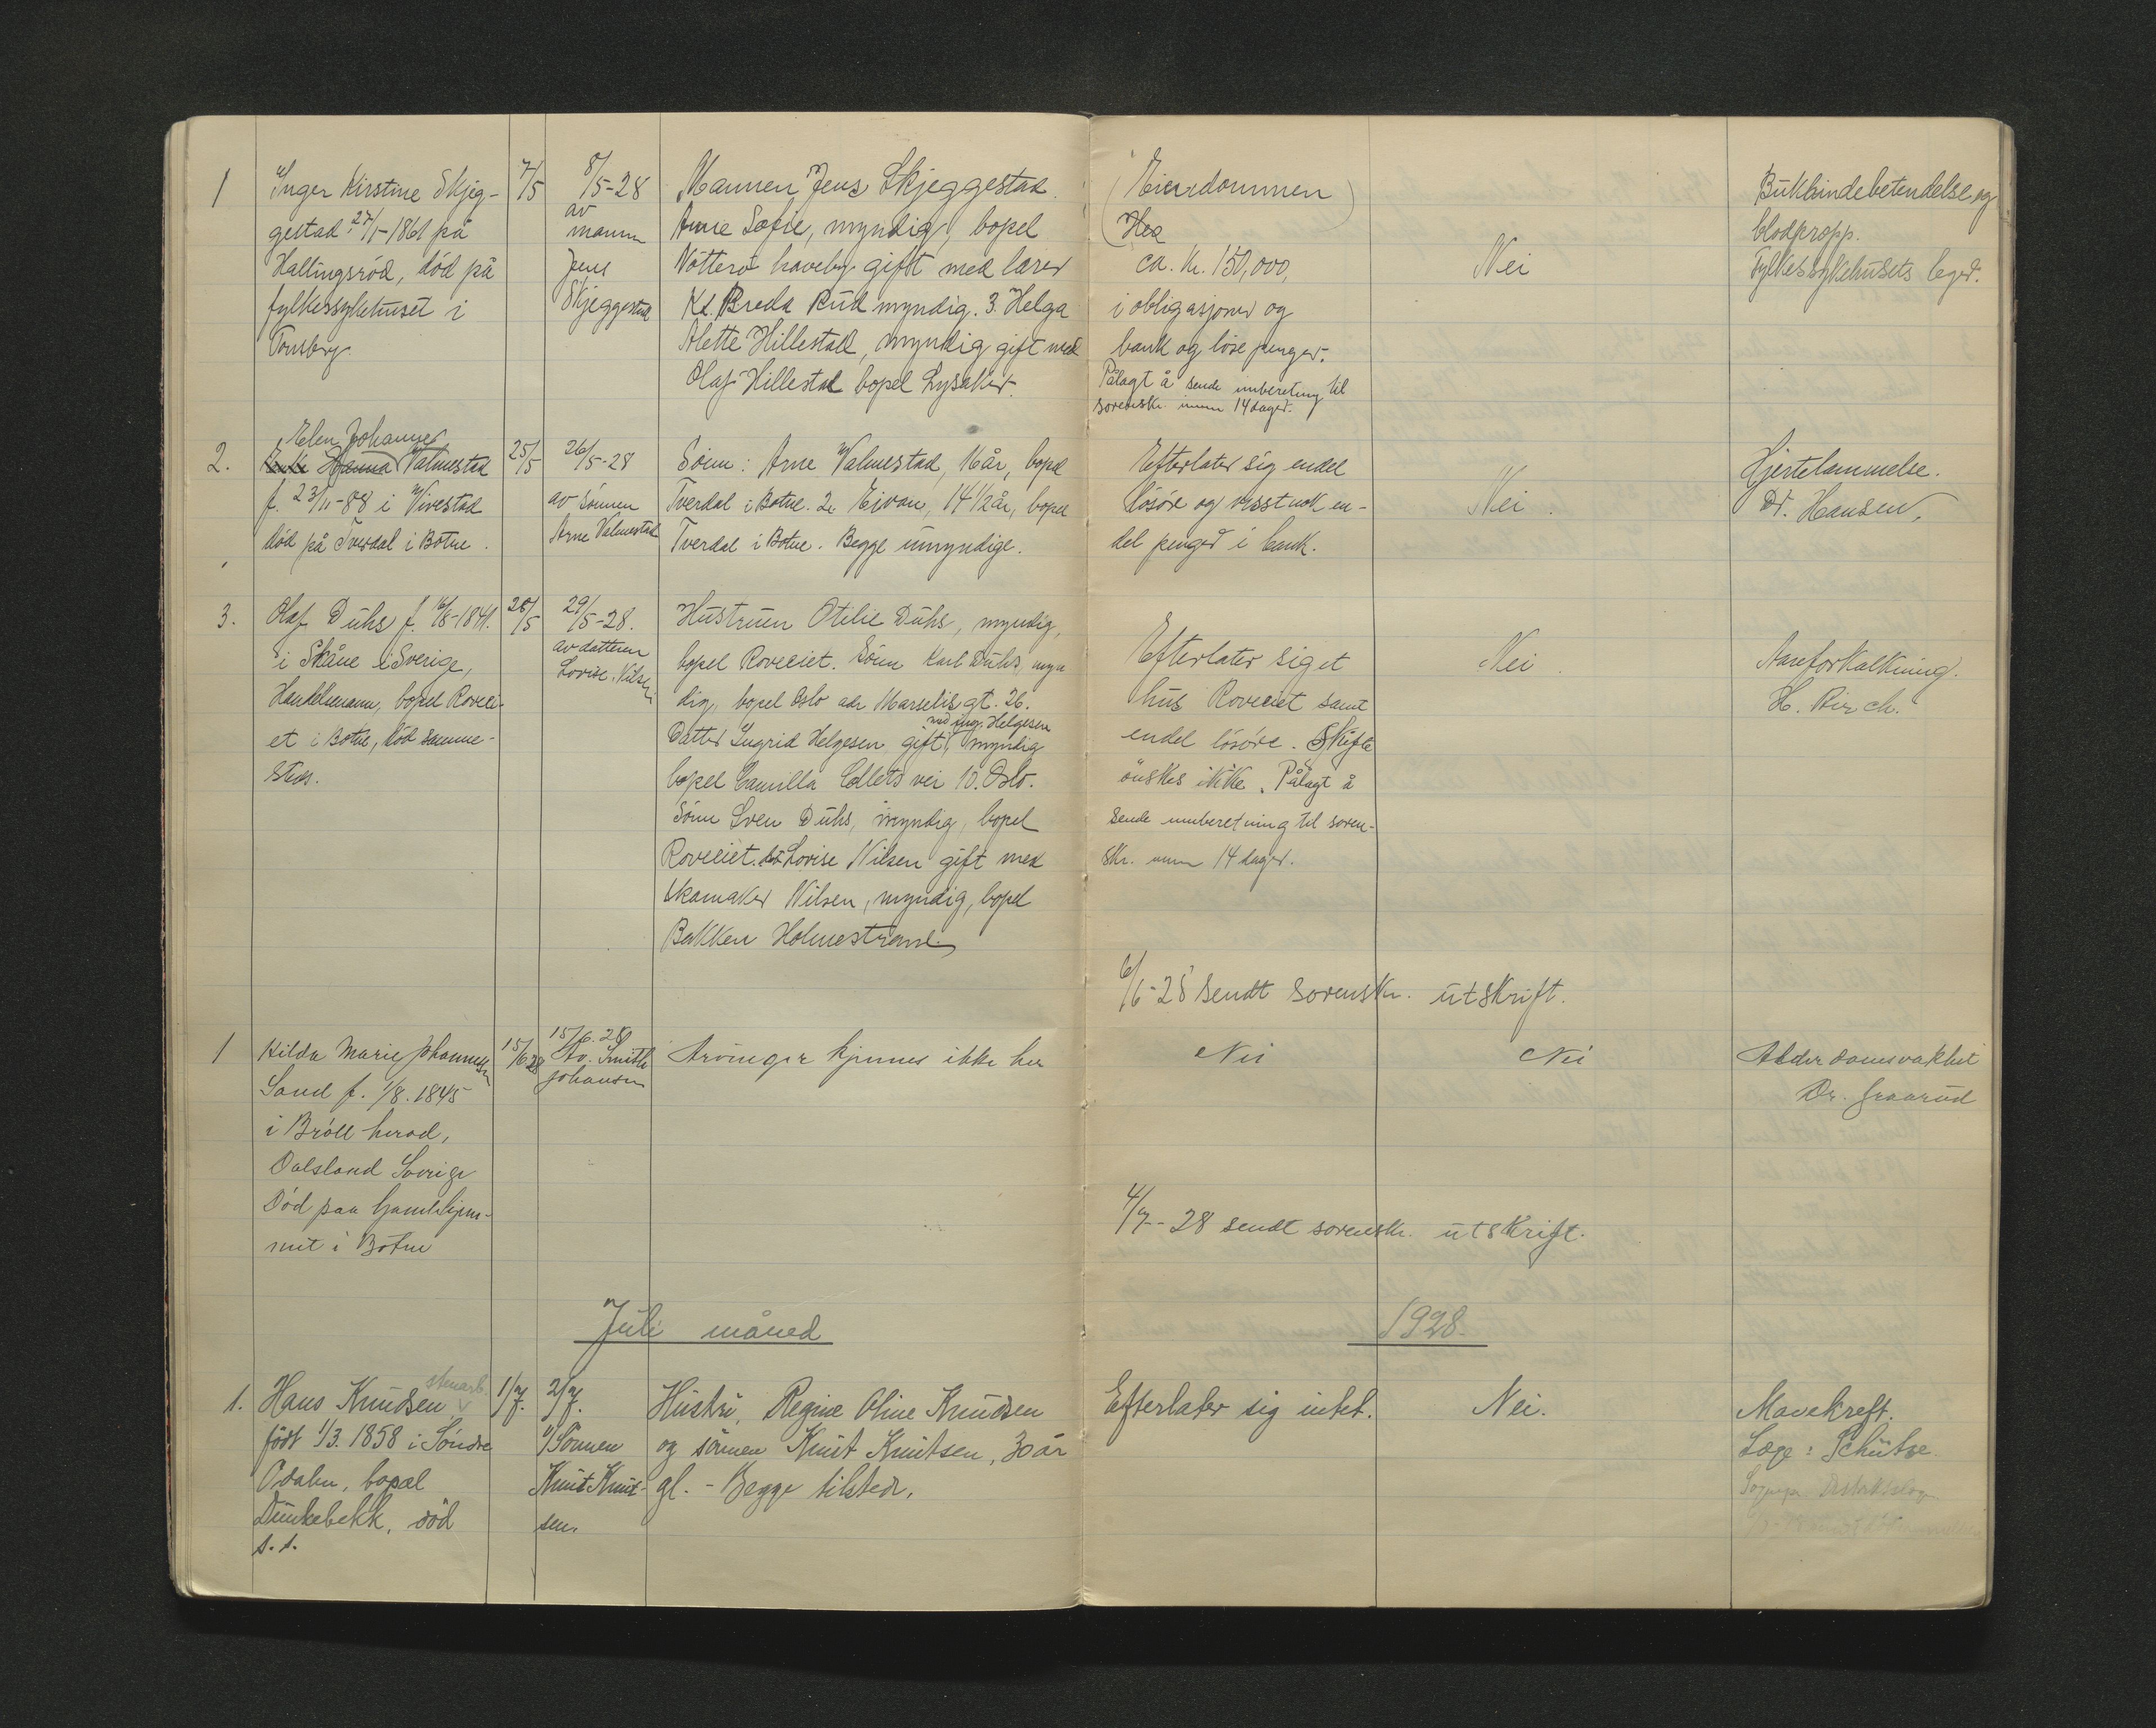 1
Inger Kirstine Skjeg-
gestad f. 27/1-1861 på
Hallingsröd, död på
fylkessykehuset i
Tönsberg
7/5
8/5-28
av
mannen
Jens
Skjeggestad
Mannen Jens Skjeggestad.
Anne Sofie, myndig, bopel
Nötterö haveby gift med lærer
Kr. Breda Rud myndig. 3. Helga
Alette Hillestad, myndig gift med
Olaf Hillestad bopel Lysaker.
(Eierdommen)
(Hex
ca. kr. 150,000,
i obligasjoner og
bank og löse penger.
Pålagt å sende innberetning til
sorenskr. innen 14 dager.
Nei
Bukhindebetendelse og
blodpropp.
Fylkessykehusets leger.
2.
Elen Johanne
Hanna Valmestad
f. 23/11-88 i Vivestad
död på Tverdal i Botne.
25/5
26/5-28
av sönnen
Arne Valmestad
Sönn: Arne Valmestad, 16 år, bopel
Tverdal i Botne. 2. Eivan, 14 1/2 år, bopel
Tverdal i Botne. Begge umyndige.
Efterlater sig endel
lösöre og visst nok en-
del penger i bank.
Nei.
Hjertelammelse.
Dr. Hansen,
3.
Olaf Duhs f. 16/8-1841.
i Skåne i Sverige,
Handelsmann, bopel Roveei-
et i Botne, död samme-
sted.
28/5
29/5-28.
av datteren
Lovise Nilsen
Hustruen Otilie Duhs, myndig,
bopel Roveeiet. Sönn Karl Duhs, myn
dig, bopel Oslo adr Marselis gt. 26.
med ing. Helgesen
Datter Ingrid Helgesen gift, myndig
bopel Camilla Colletts vei 10. Oslo.
Sönn Sven Duhs, myndig, bopel
Roveeiet. Lovise Nilsen gift med
skomaker Nilsen, myndig, bopel
Bakken Holmestrand.
Efterlater sig et
hus Roveeiet samt
endel lösöre. Skifte
önskes ikke. Pålagt å
sende innberetning til soren-
skr. innen 14 dager.
Nei.
Aareforkalkning.
H. Birch.
6/6-28 sendt sorenskr. utskrift.
1
Hilda Marie Johannesen
Sand f. 1/8. 1845
i Bröll herad,
Dalsland Sverige
Död paa Gamlehjem-
met i Botne
15/6 28
15/6. 28
Av. Smith
Johansen
Arvinger kjennes ikke her
Nei
Nei
Alderdomsvakhet
Dr. Graarud
4/7-28 sendt sorenskr. utskrift.
Juli måned
1928.
1.
stenarb.
Hans Knudsen
födt 1/3. 1858 i Söndre
Odalen, bopæl
Dunkebekk, död
s. s.
1/7.
2/7.
v/Sönnen
Knut Knut-
sen.
Hustru, Regine Oline Knudsen
og sönnen Knut Knutsen, 30 år
gl. - Begge tilstede.
Efterlater sig intet.
Nei.
Mavekreft.
Læge: Schutze.